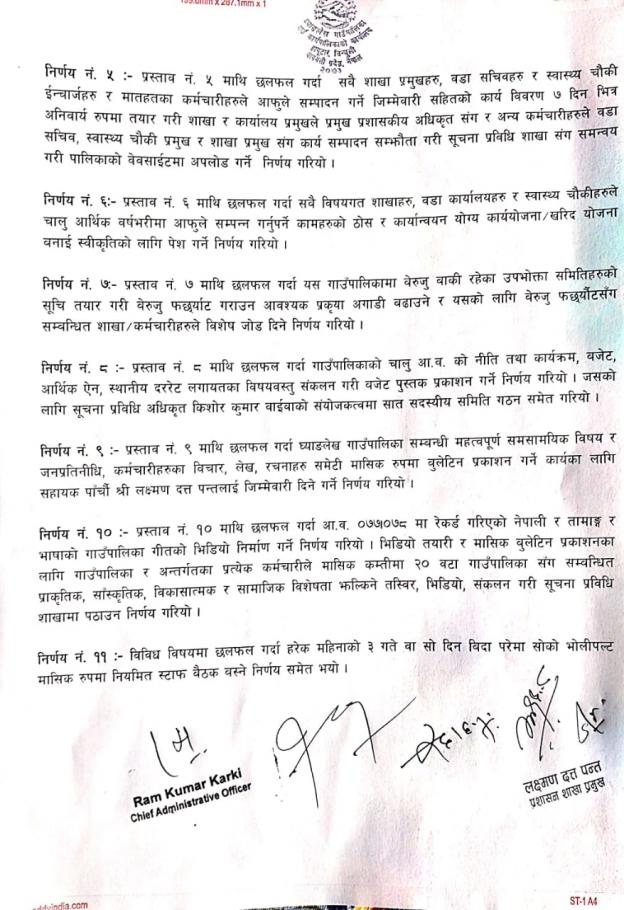 287.1mm x 1
गाउँपालिका
निर्णय नं. ५ :- प्रस्ताव नं. ५ माथि छलफल गर्दा सवै शाखा प्रमुखहरु, वडा सचिवहरु र स्वास्थ्य चौकी
ईन्चार्जहरु र मातहतका कर्मचारीहरुले आफुले सम्पादन गर्ने जिम्मेवारी सहितको कार्य विवरण ७ दिन भित्र
अनिवार्य रुपमा तयार गरी शाखा र कार्यालय प्रमुखले प्रमुख प्रशासकीय अधिकृत संग र अन्य कर्मचारीहरुले वडा
सचिव, स्वास्थ्य चौकी प्रमुख र शाखा प्रमुख संग कार्य सम्पादन सम्झौता गरी सूचना प्रविधि शाखा संग समन्वय
गरी पालिकाको वेवसाईटमा अपलोड गर्ने निर्णय गरियो ।
निर्णय नं. ६:- प्रस्ताव नं. ६ माथि छलफल गर्दा सवै विषयगत शाखाहरु, वडा कार्यालयहरु र स्वास्थ्य चौकीहरुले
चालु आर्थिक वर्षभरीमा आफुले सम्पन्न गर्नुपर्ने कामहरुको ठोस र कार्यान्वयन योग्य कार्ययोजना/खरिद योजना
वनाई स्वीकृतिको लागि पेश गर्ने निर्णय गरियो ।
निर्णय नं. ७:- प्रस्ताव नं. ७ माथि छलफल गर्दा यस गाउँपालिकामा वेरुजु वाकी रहेका उपभोक्ता समितिहरुको
सूचि तयार गरी वेरुजु फछर्यौट गराउन आवश्यक प्रकृया अगाडी वढाउने र यसको लागि वेरुजु फछर्यौटसँग
सम्वन्धित शाखा/कर्मचारीहरुले विशेष जोड दिने निर्णय गरियो ।
निर्णय नं. ८ :- प्रस्ताव नं. ८ माथि छलफल गर्दा गाउँपालिकाको चालु आ.व. को नीति तथा कार्यक्रम, वजेट,
आर्थिक ऐन, स्थानीय दररेट लगायतका विषयवस्तु संकलन गरी वजेट पुस्तक प्रकाशन गर्ने निर्णय गरियो । जसको
लागि सूचना प्रविधि अधिकृत किशोर कुमार वाईवाको संयोजकत्वमा सात सदस्यीय समिति गठन समेत गरियो ।
निर्णय नं. ९ :- प्रस्ताव नं. ९ माथि छलफल गर्दा घ्याङलेख गाउँपालिका सम्वन्धी महत्वपूर्ण समसामयिक विषय र
जनप्रतिनीधि, कर्मचारीहरुका विचार, लेख, रचनाहरु समेटी मासिक रुपमा वुलेटिन प्रकाशन गर्ने कार्यका लागि
सहायक पाँचौं श्री लक्ष्मण दत्त पन्तलाई जिम्मेवारी दिने गर्ने निर्णय गरियो ।
निर्णय नं. १० :- प्रस्ताव नं. १० माथि छलफल गर्दा आ.व. ०७७०७८ मा रेकर्ड गरिएको नेपाली र तामाङ्ग र
भाषाको गाउँपालिका गीतको भिडियो निर्माण गर्ने निर्णय गरियो । भिडियो तयारी र मासिक वुलेटिन प्रकाशनका
लागि गाउँपालिका र अन्तर्गतका प्रत्येक कर्मचारीले मासिक कम्तीमा २० वटा गाउँपालिका संग सम्वन्धित
प्राकृतिक, साँस्कृतिक, विकासात्मक र सामाजिक विशेषता झल्किने तस्विर, भिडियो, संकलन गरी सूचना प्रविधि
शाखामा पठाउन निर्णय गरियो ।
निर्णय नं. ११ :- विविध विषयमा छलफल गर्दा हरेक महिनाको ३ गते वा सो दिन विदा परेमा सोको भोलीपल्ट
मासिक रुपमा नियमित स्टाफ वैठक वस्ने निर्णय समेत भयो ।
Ram Kumar Karki
Chief Administrative Officer
लक्ष्मण दत्त पन्त
प्रशासन शाखा प्रमुख
ST-1 A4